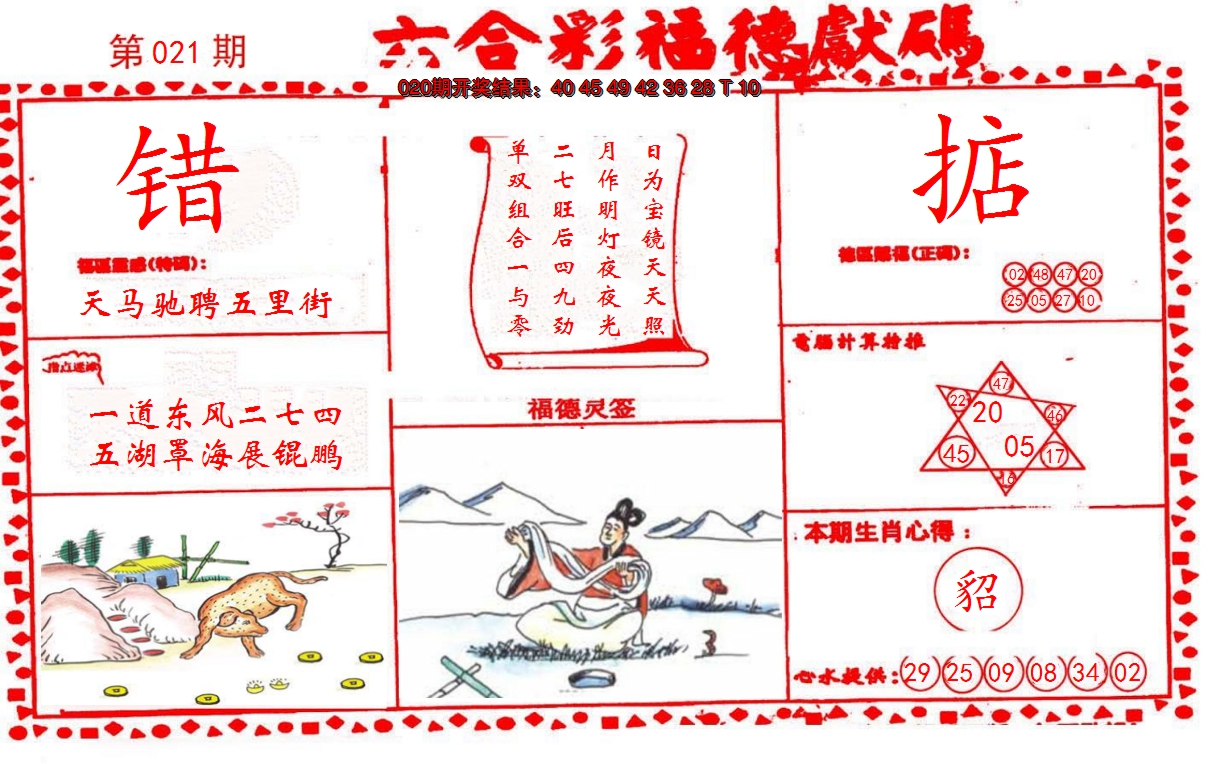 第 021 期
六合彩福德獻碼
020期开奖结果：40 45 49 42 36 28 T 10
错
天马驰聘五里街
一道东风二七四
五湖罩海展锟鹏
日为宝镜天天照
月作明灯夜夜光
二七旺后四九劲
单双组合一与零
福德灵签
掂
(正碼)：
02 48 47 20
25 05 27 10
電腦計算推
47
22 20 46
45 05 17
16
本期生肖心得：
貂
心水提供：29 25 09 08 34 02